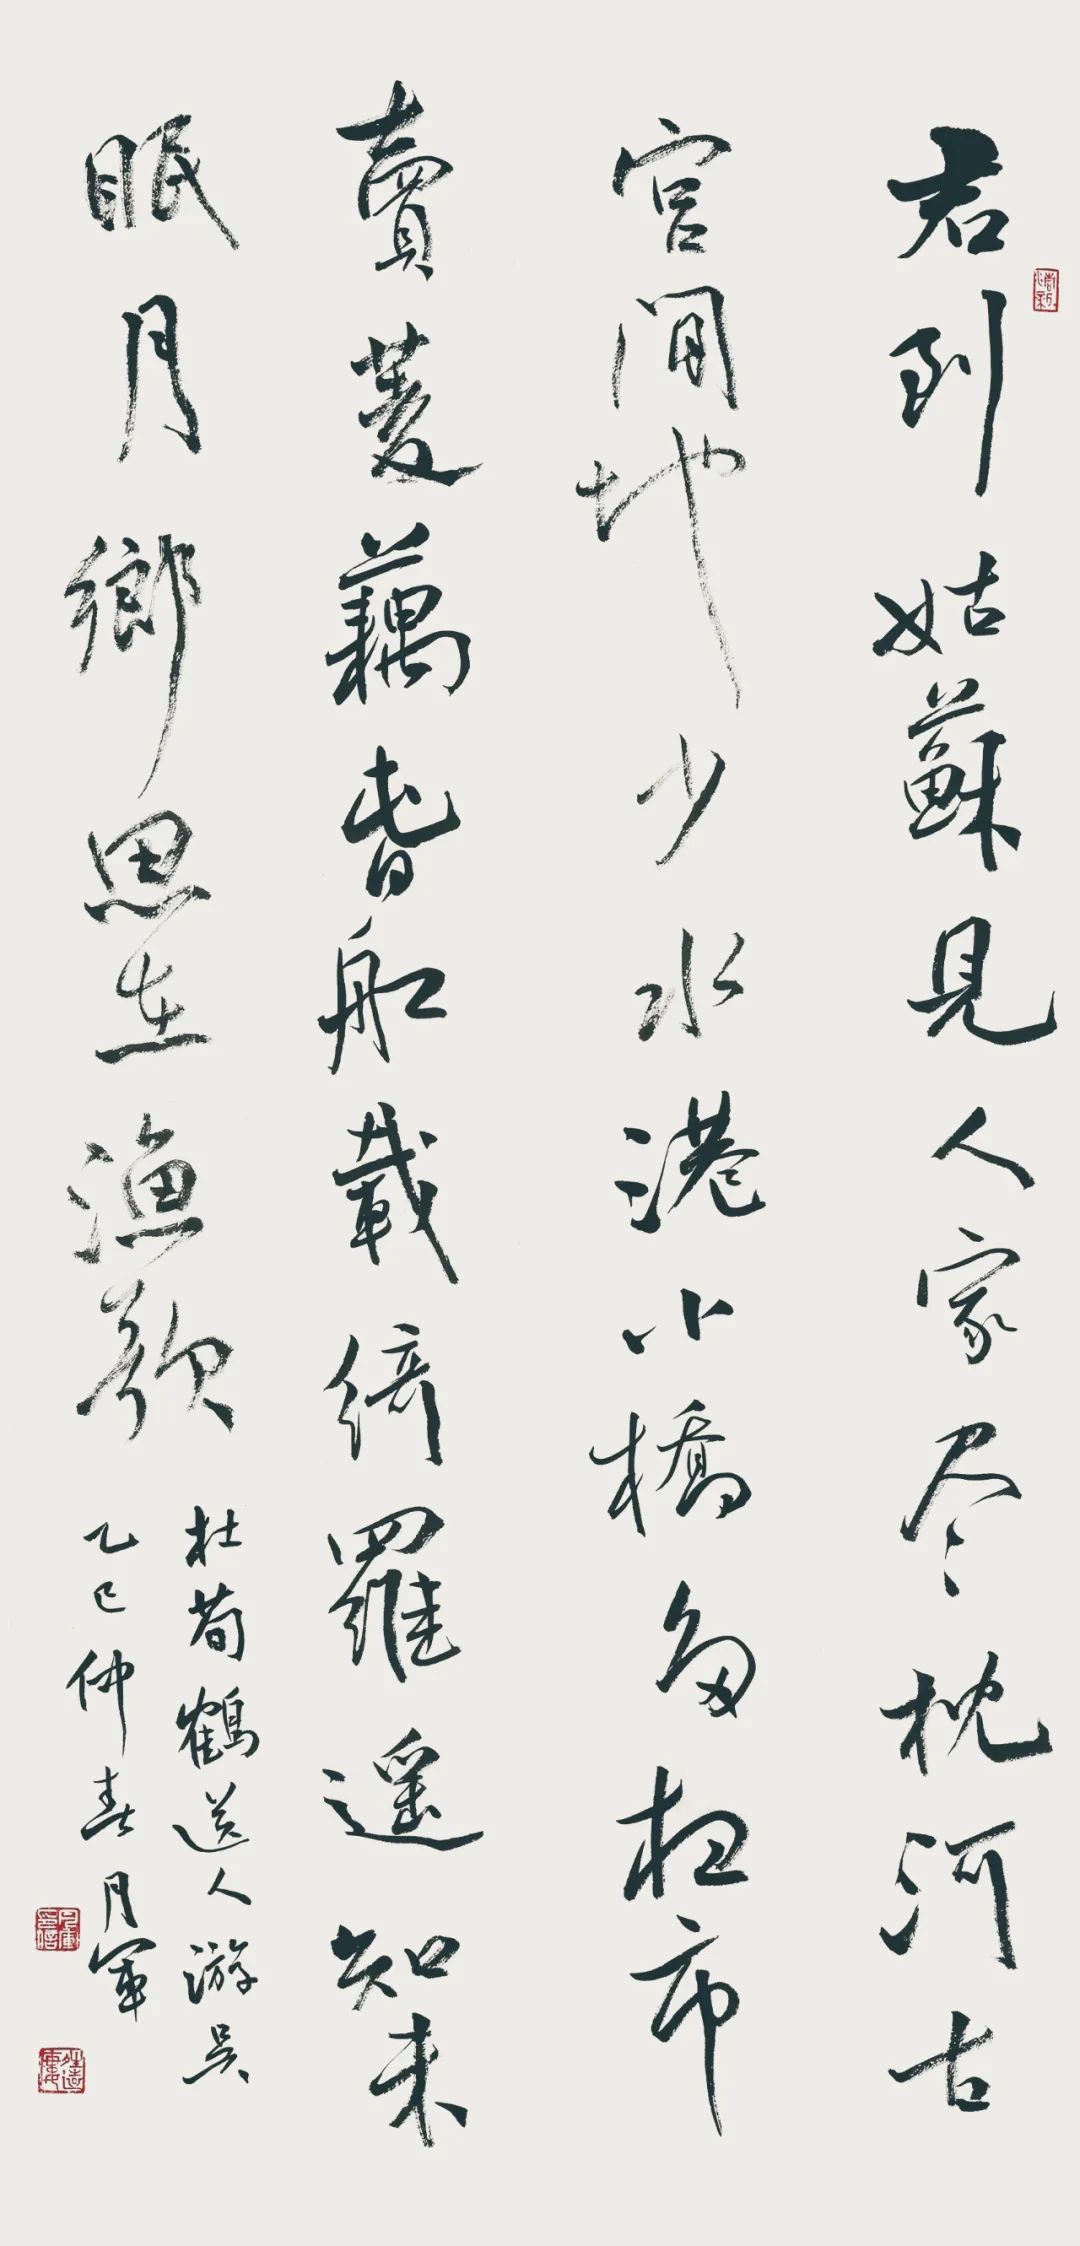 君到姑蘇見人家尽枕河古
宫閒地少水港小橋多市
賣菱藕旾舡載綺羅遥知未
眠月鄉思在漁歌
杜荀鶴送人游吴
乙巳仲春月軍